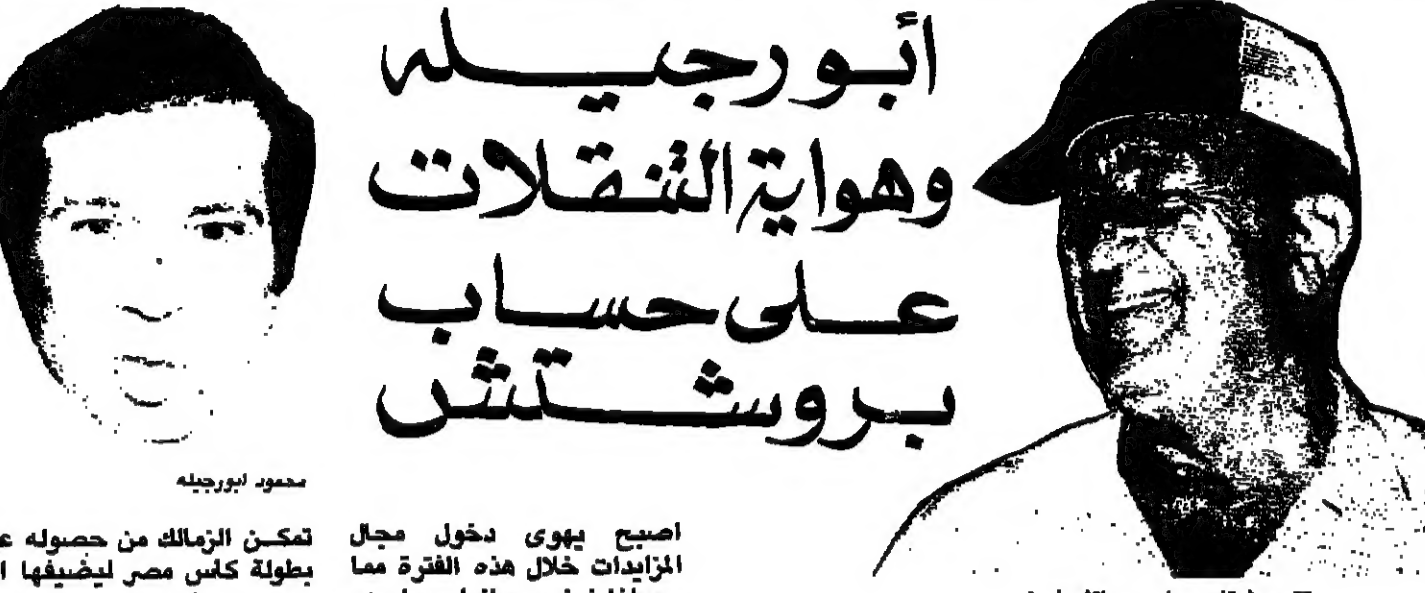 أبو رجيله
وهواية التنقلات
على حساب
بروشتش
محمود ابورجيله
اصبح يهوى دخول مجال
المزايدات خلال هذه الفترة مما
تمكن الزمالك من حصوله
بطولة كاس مصر ليضيفها